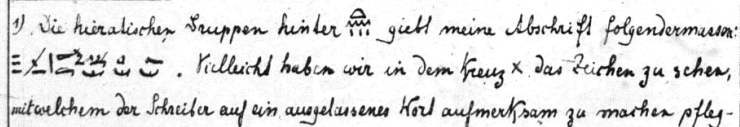 1) Die hieratischen Gruppen hinter giebt meine Abschrift folgendermassen:
. Vielleicht haben wir in dem Kreuz × das Zeichen zu sehen,
mit welchem der Schreiber auf ein ausgelassenes Wort aufmerksam zu machen pfleg-